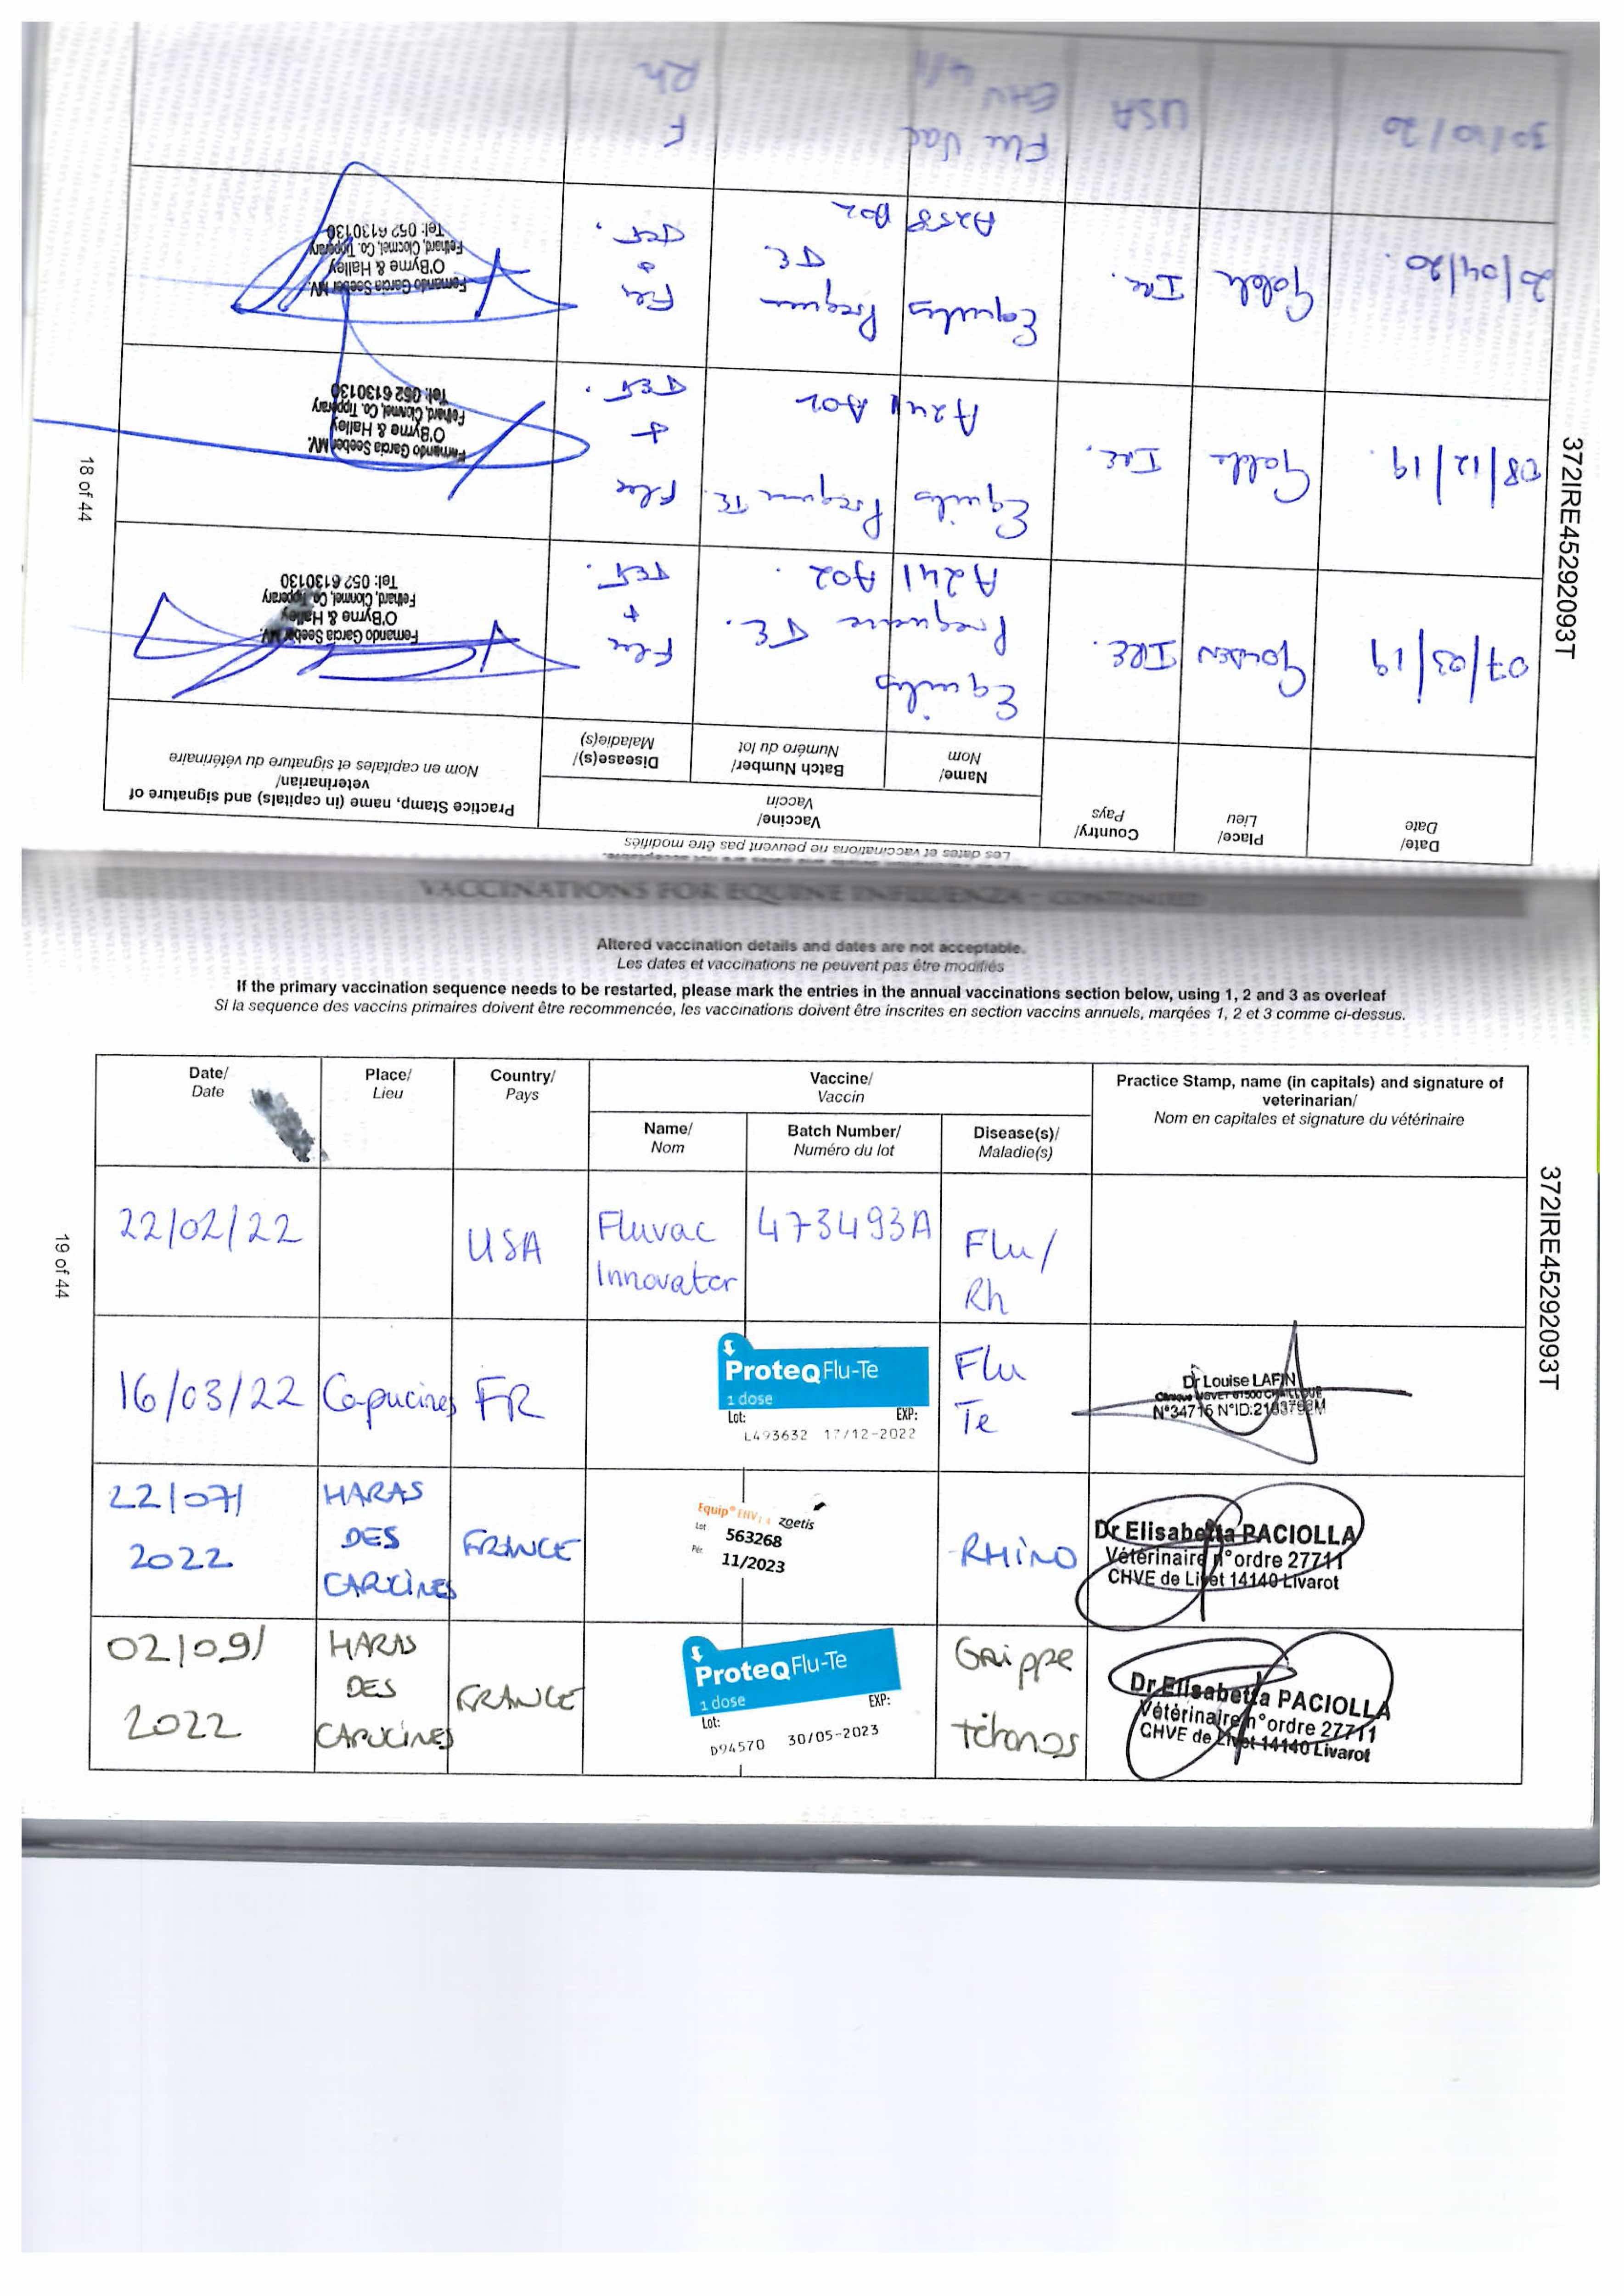 Les dates et vaccinations ne peuvent pas être modifiés
Date/
Date
Place/
Lieu
Country/
Pays
Vaccine/
Vaccin
Name/
Nom
Batch Number/
Numéro du lot
Disease(s)/
Maladie(s)
Practice Stamp, name (in capitals) and signature of
veterinarian/
Nom en capitales et signature du vétérinaire
07/03/19
GOLDEN
IRE.
Equilis
Prequenza TE.
A241 A02.
Flu
+
TET.
Fernando Garcia Seeber MV.
O'Byrne & Halley
Fethard, Clonmel, Co. Tipperary
Tel: 052 6130130
08/12/19.
IRE.
Equilis
TE.
A241 A02
Flu
+
TET.
Fernando Garcia Seeber MV.
O'Byrne & Halley
Fethard, Clonmel, Co. Tipperary
Tel: 052 6130130
20/04/20.
IRE.
Equilis
TE
A258 B02
Flu
+
TET.
Fernando Garcia Seeber MV.
O'Byrne & Halley
Fethard, Clonmel, Co. Tipperary
Tel: 052 6130130
30/10/20
USA
Flu Vac
EHV 4/1
F
Rh
18 of 44
372IRE45292093T
VACCINATIONS FOR EQUINE INFLUENZA - CONTINUED
Altered vaccination details and dates are not acceptable.
Les dates et vaccinations ne peuvent pas être modifiés
If the primary vaccination sequence needs to be restarted, please mark the entries in the annual vaccinations section below, using 1, 2 and 3 as overleaf
Si la sequence des vaccins primaires doivent être recommencée, les vaccinations doivent être inscrites en section vaccins annuels, marqées 1, 2 et 3 comme ci-dessus.
Date/
Date
Place/
Lieu
Country/
Pays
Vaccine/
Vaccin
Name/
Nom
Batch Number/
Numéro du lot
Disease(s)/
Maladie(s)
Practice Stamp, name (in capitals) and signature of
veterinarian/
Nom en capitales et signature du vétérinaire
22/02/22
USA
Fluvac
Innovator
473493A
Flu/
Rh
16/03/22
Capucines
FR
ProteqFlu-Te
1 dose
Lot: EXP:
L493632 17/12-2022
Flu
Te
Dr Louise LAFIN
N°34715 N°ID:
22/07/
2022
HARAS
DES
CAPUCINES
FRANCE
Equip® EHV1,4 zoetis
Lot 563268
Pér. 11/2023
RHINO
Dr Elisabetta PACIOLLA
Vétérinaire n°ordre 27711
CHVE de Livet 14140 Livarot
02/09/
2022
HARAS
DES
CAPUCINES
FRANCE
ProteqFlu-Te
1 dose
Lot: EXP:
D94570 30/05-2023
Grippe
tétanos
Dr Elisabetta PACIOLLA
Vétérinaire n°ordre 27711
CHVE de Livet 14140 Livarot
19 of 44
372IRE45292093T